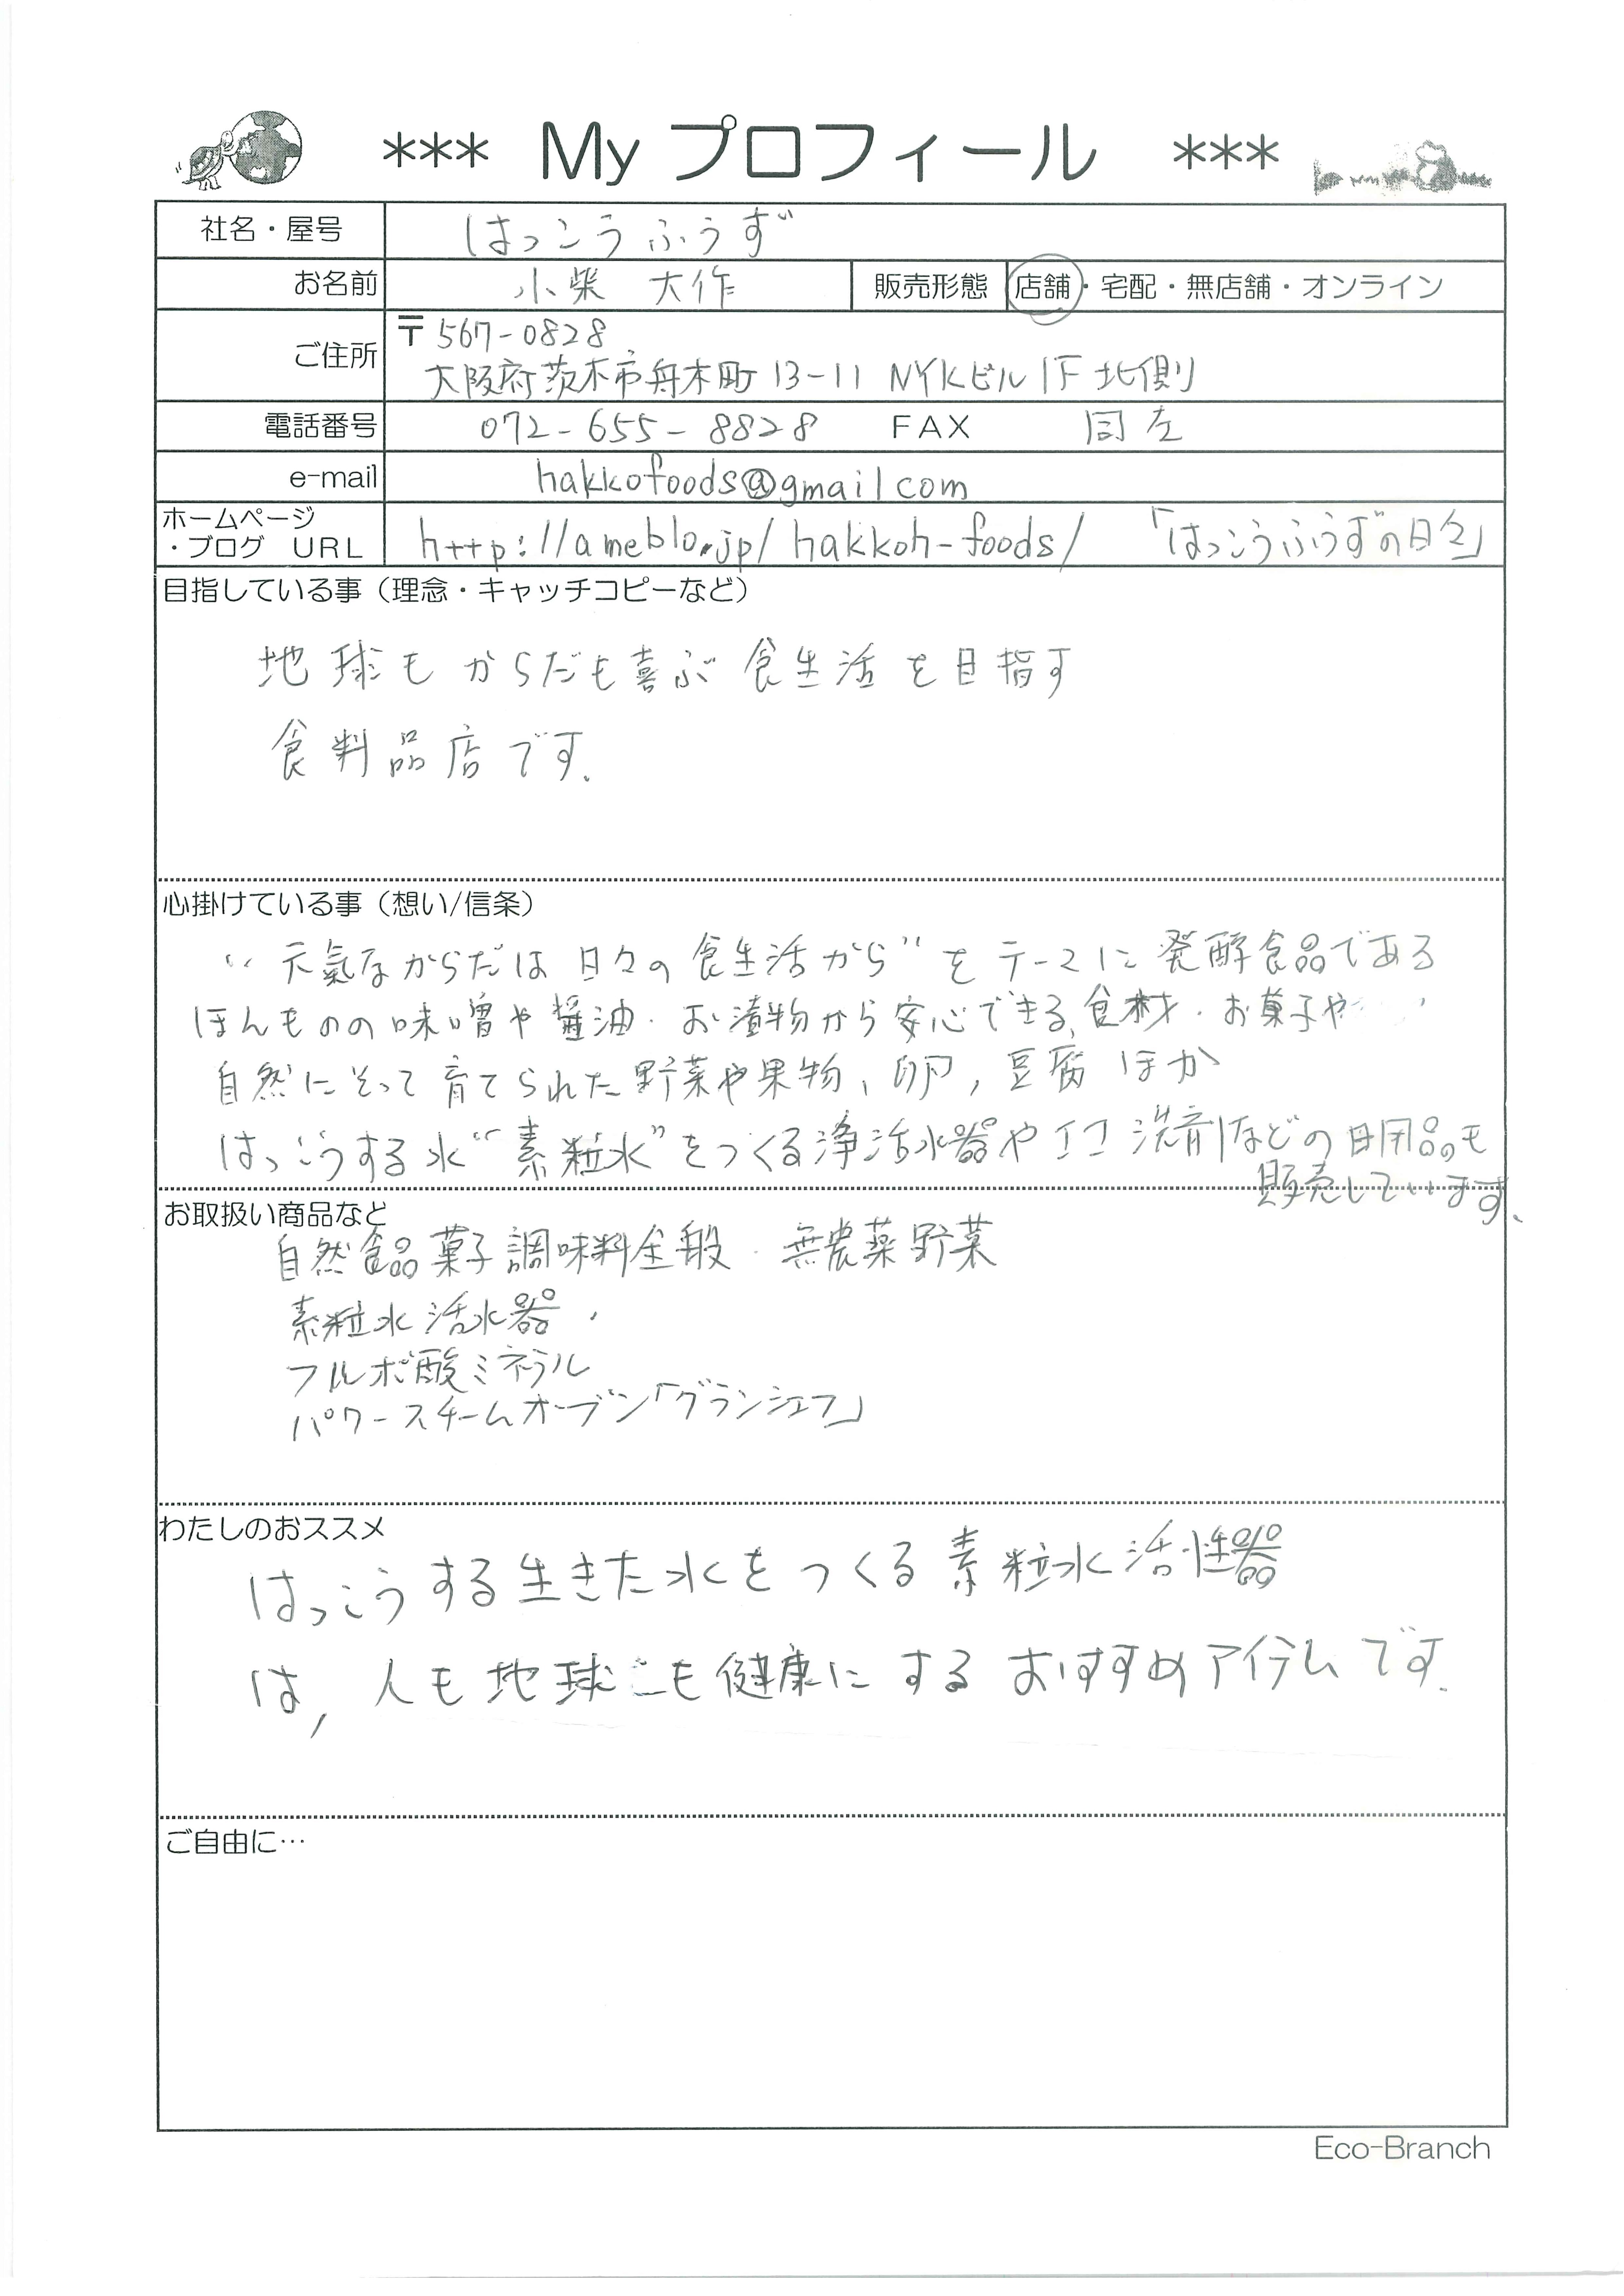 *** My プロフィール ***
社名・屋号 はっこうふうず
お名前 小柴 大作 販売形態 店舗・宅配・無店舗・オンライン
ご住所 〒567-0828
大阪府茨木市舟木町13-11 NYKビル1F 北側
電話番号 072-655-8828 FAX 同左
e-mail hakkofoods@gmail.com
ホームページ
・ブログ URL http://ameblo.jp/hakkoh-foods/ 「はっこうふうずの日々」
目指している事（理念・キャッチコピーなど）
地球もからだも喜ぶ食生活を目指す
食料品店です.
心掛けている事（想い/信条）
“元氣なからだは日々の食生活から”をテーマに発酵食品である
ほんものの味噌や醤油・お漬物から安心できる食材・お菓子や
自然にそって育てられた野菜や果物、卵、豆腐ほか
はっこうする水“素粒水”をつくる浄活水器やエコ洗剤などの日用品も
販売しています、
お取扱い商品など
自然食品菓子調味料全般・無農薬野菜
素粒水活水器・
フルボ酸ミネラル
パワースチームオーブン「グランシェフ」
わたしのおススメ
はっこうする生きた水をつくる素粒水活性器
は、人も地球も健康にするおすすめアイテムです.
ご自由に…
Eco-Branch